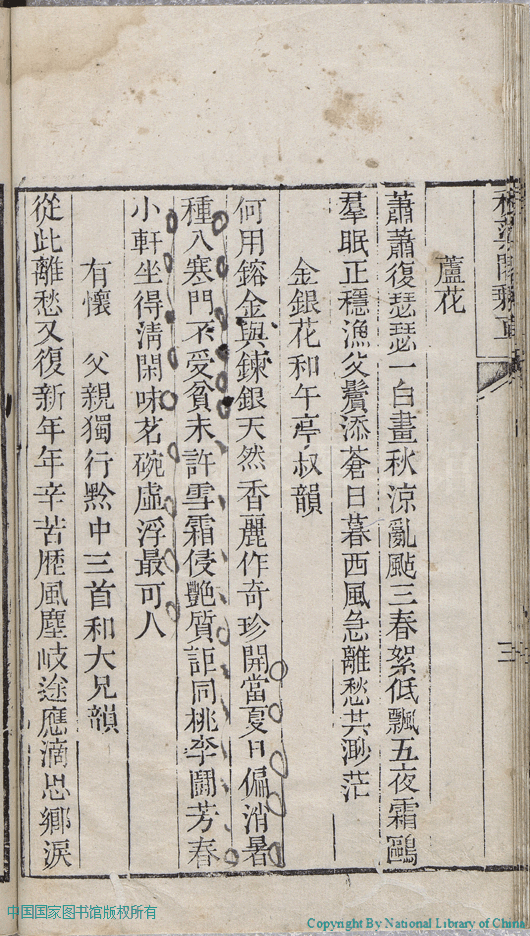 蘆花
蕭蕭復瑟瑟一白畫秋涼亂颭三春絮低飄五夜霜鷗
羣眠正穩漁父鬢添蒼日暮西風急離愁共渺茫
金銀花和午亭叔韻
何用鎔金與鍊銀天然香麗作奇珍開當夏日偏消暑
種入寒門不受貧未許雪霜侵艷質詎同桃李鬪芳春
小軒坐得淸閑味茗碗虛浮最可人
有懷　父親獨行黔中三首和大兄韻
從此離愁又復新年年辛苦歷風塵岐途應滴思鄉淚
中国国家图书馆版权所有
Copyright By National Library of China